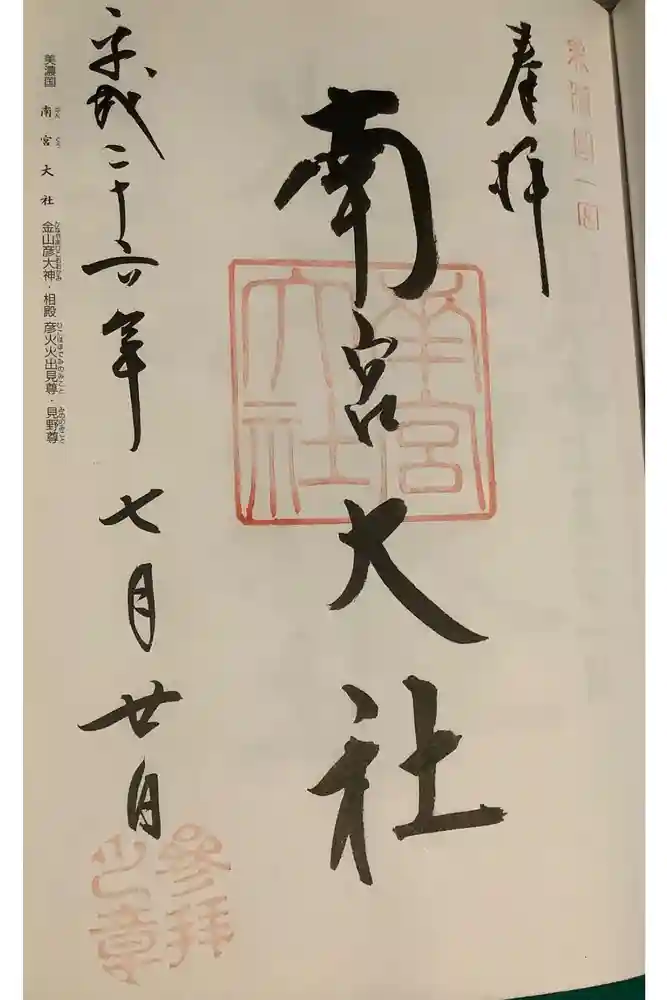 奉拝
南宮大社
南宮大社
平成二十六年七月廿日
参拝之章
美濃国 南宮大社 金山彦大神・相殿 彦火火出見尊・見野尊